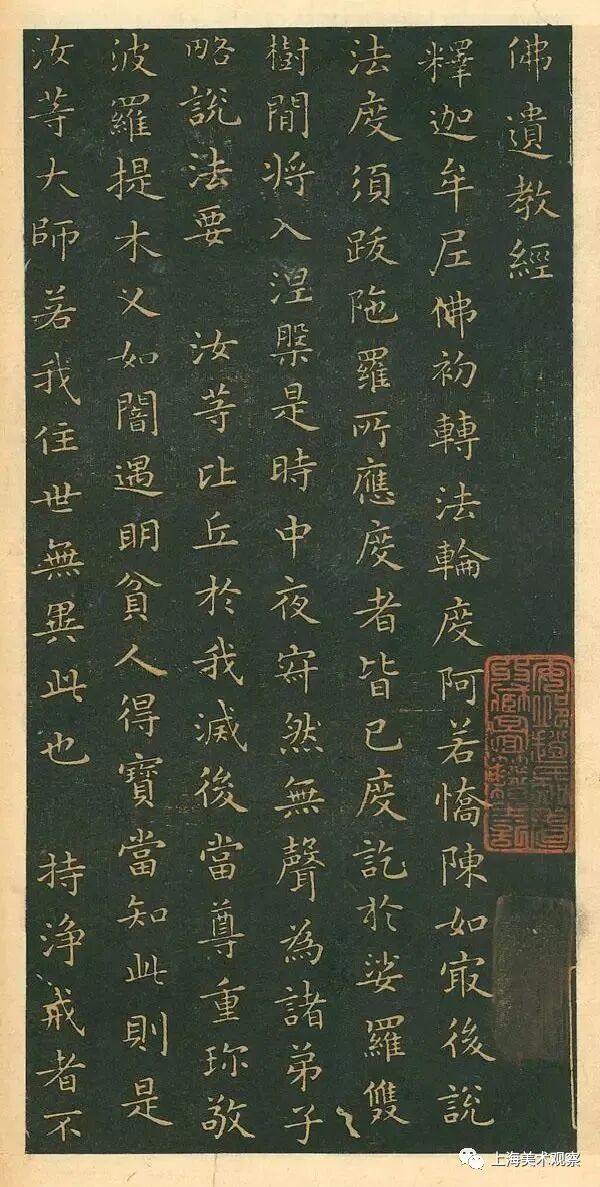 佛遺教經
釋迦牟尼佛初轉法輪度阿若憍陳如寂後說
法度須跋陁羅所應度者皆已度訖於娑羅雙
樹間将入涅槃是時中夜寂然無聲為諸弟子
略說法要 汝等比丘於我滅後當尊重珎敬
波羅提木义如闇遇明貧人得寶當知此則是
汝等大師若我住世無異此也 持淨戒者不
上海美术观察